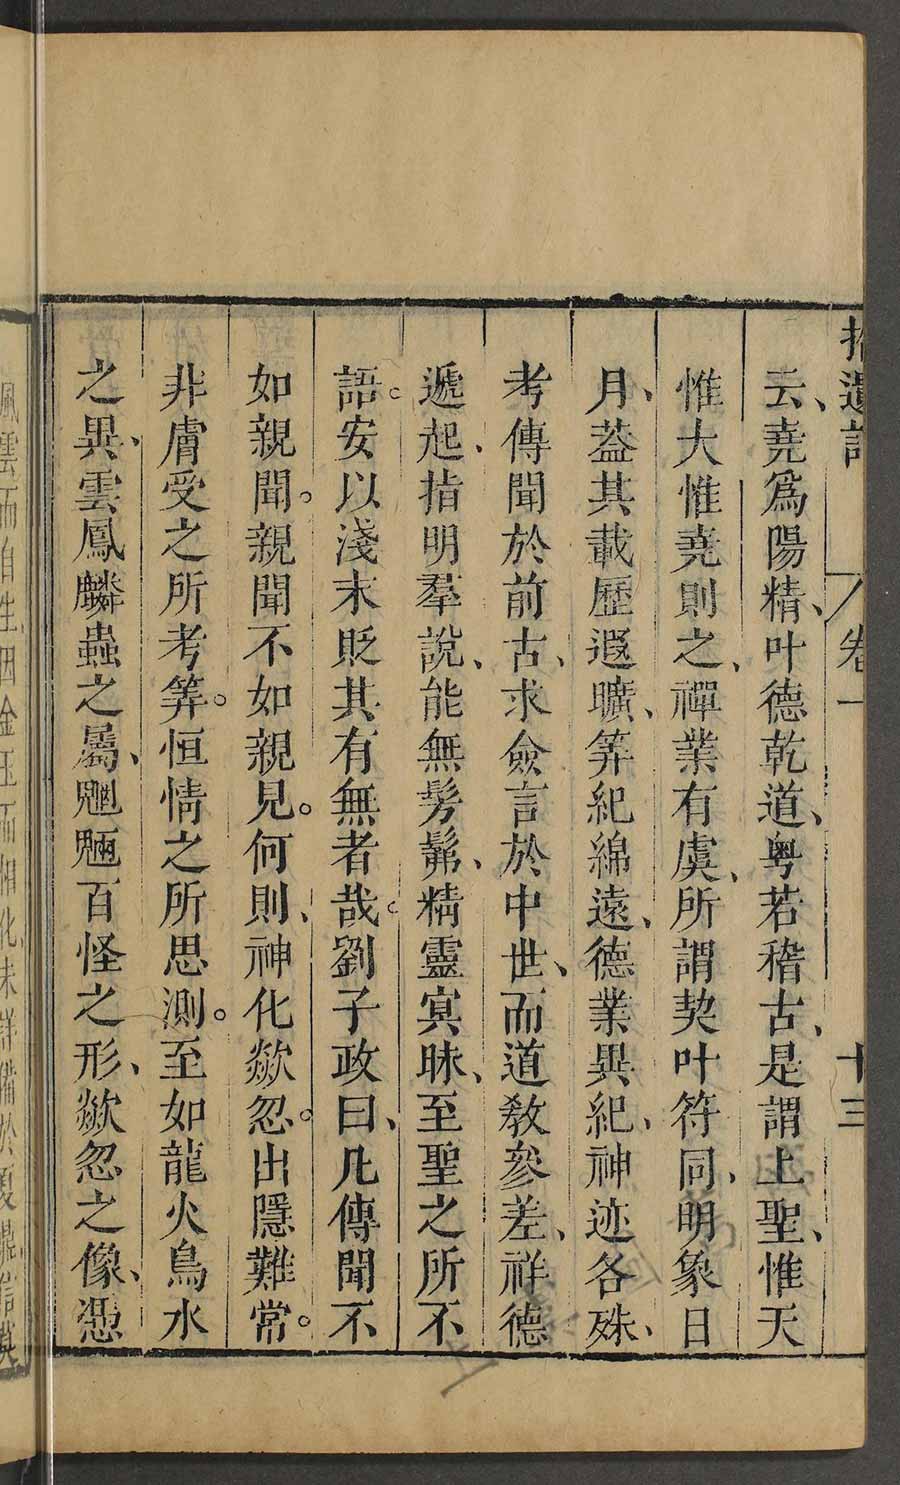 拾遺記 卷一 十三
云、堯爲陽精、叶德乾道、粵若稽古、是謂上聖、惟天
惟大惟堯則之、禪業有虞、所謂契叶符同、明象日
月、葢其載歷遐曠、筭紀綿遠、德業異紀、神迹各殊、
考傳聞於前古、求僉言於中世、而道教參差、祥德
遞起、指明羣說、能無髣髴、精靈冥昧、至聖之所不
語。安以淺末貶其有無者哉。劉子政曰、凡傳聞不
如親聞。親聞不如親見。何則、神化欻忽。出隱難常。
非膚受之所考筭。恒情之所思測。至如龍火鳥水
之異、雲鳳麟蟲之屬、魍魎百怪之形、欻忽之像、憑
風雲而自生因金玉而相化未詳備於夏鼎信